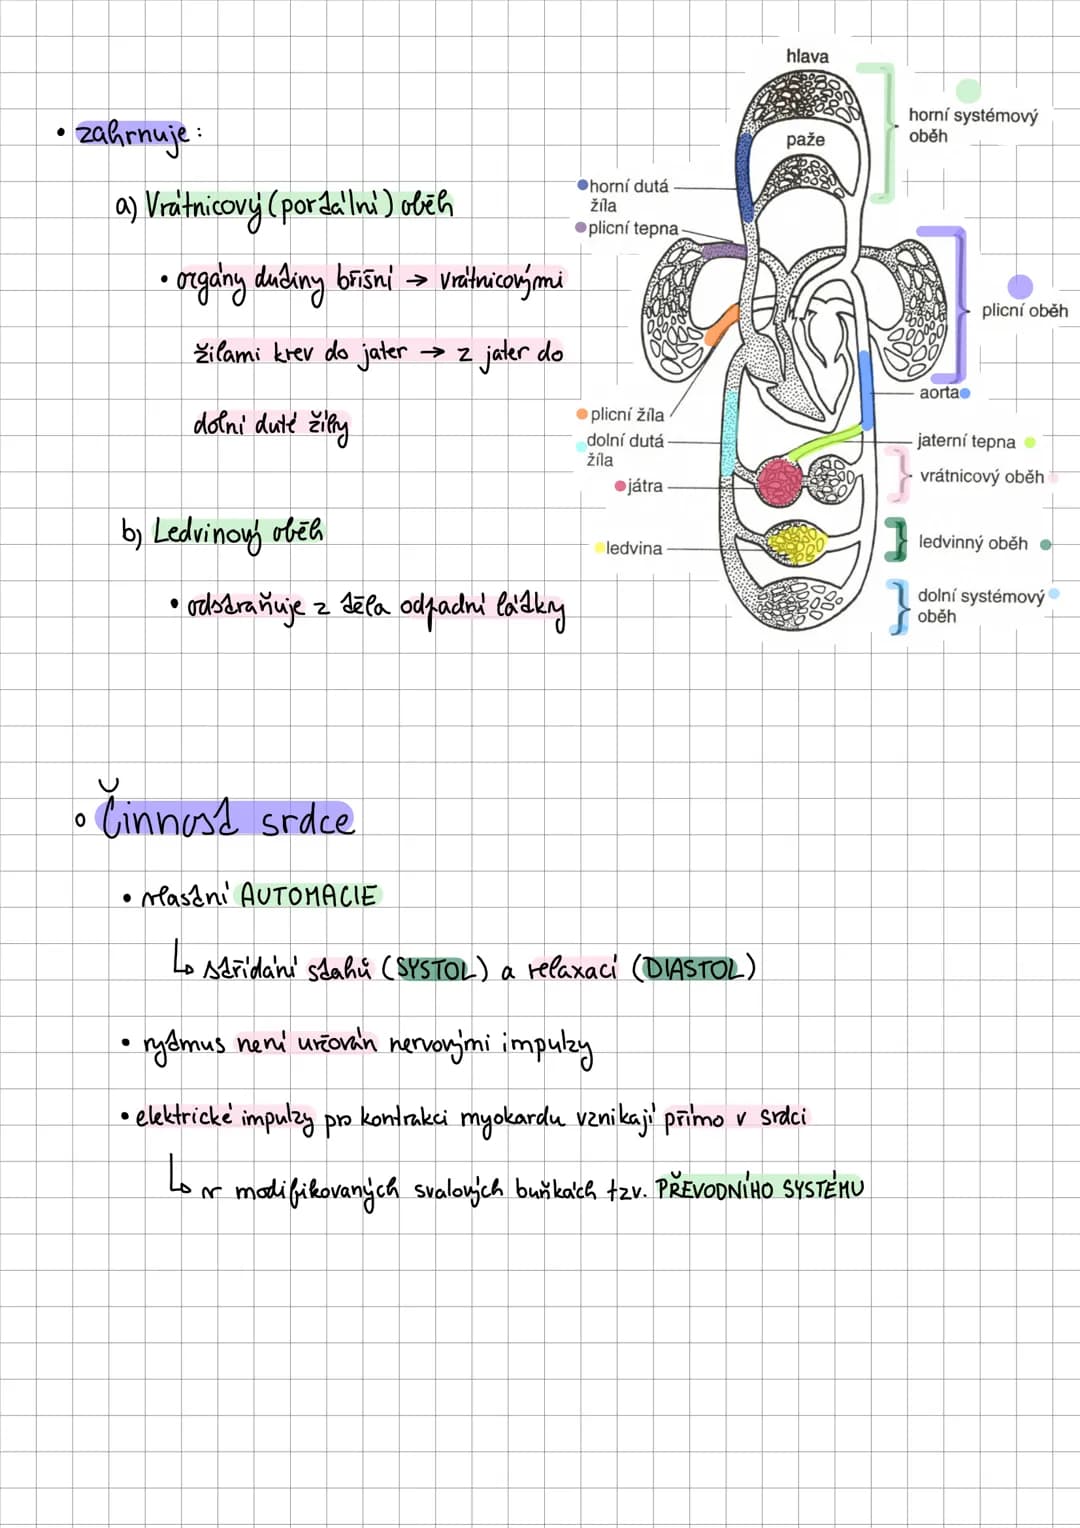 • zahrnuje:
a) Vrátnicový (portální) oběh
• orgány dutiny břišní → vrátnicovými
žilami krev do jater → z jater do
dolní duté žíly
b) Ledvinový oběh
• odstraňuje z těla odpadní látky
hlava
paže
horní dutá
žíla
plicní tepna
plicní žíla
dolní dutá
žíla
játra
ledvina
horní systémový
oběh
plicní oběh
aorta
jaterní tepna
vrátnicový oběh
ledvinný oběh
dolní systémový
oběh
Činnost srdce
• vlastní AUTOMACIE
↳ střídání stahů (SYSTOL) a relaxací (DIASTOL)
• rytmus není určován nervovými impulzy
• elektrické impulzy pro kontrakci myokardu vznikají přímo v srdci
↳ v modifikovaných svalových buňkách tzv. PŘEVODNÍHO SYSTÉMU